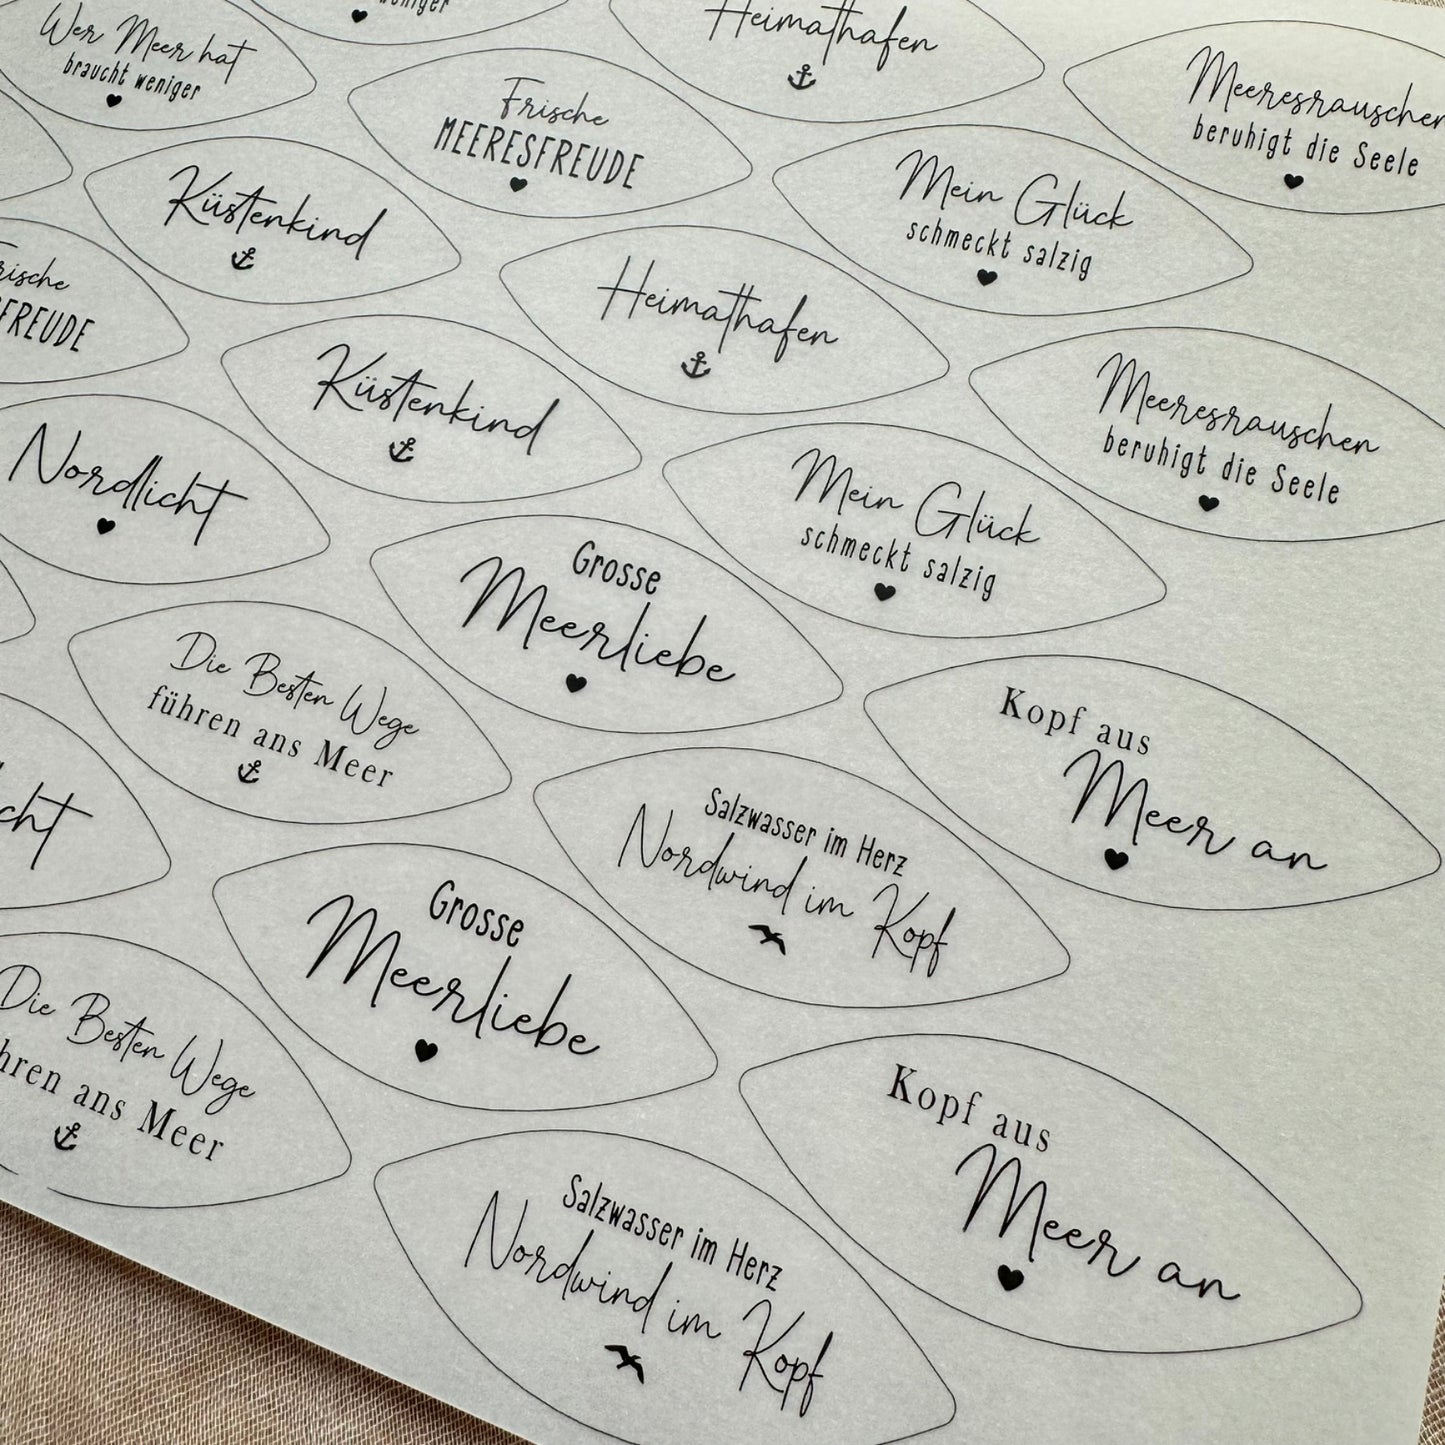 Wer Meer hat
braucht weniger
weniger
Heimathafen
Meeresrauschen
beruhigt die Seele
Frische
MEERESFREUDE
Mein Glück
schmeckt salzig
Küstenkind
Heimathafen
Meeresrauschen
beruhigt die Seele
Küstenkind
Mein Glück
schmeckt salzig
Nordlicht
Grosse
Meerliebe
Kopf aus
Meer an
Die Besten Wege
führen ans Meer
Salzwasser im Herz
Nordwind im Kopf
Grosse
Meerliebe
Kopf aus
Meer an
Die Besten Wege
ans Meer
Salzwasser im Herz
Nordwind im Kopf